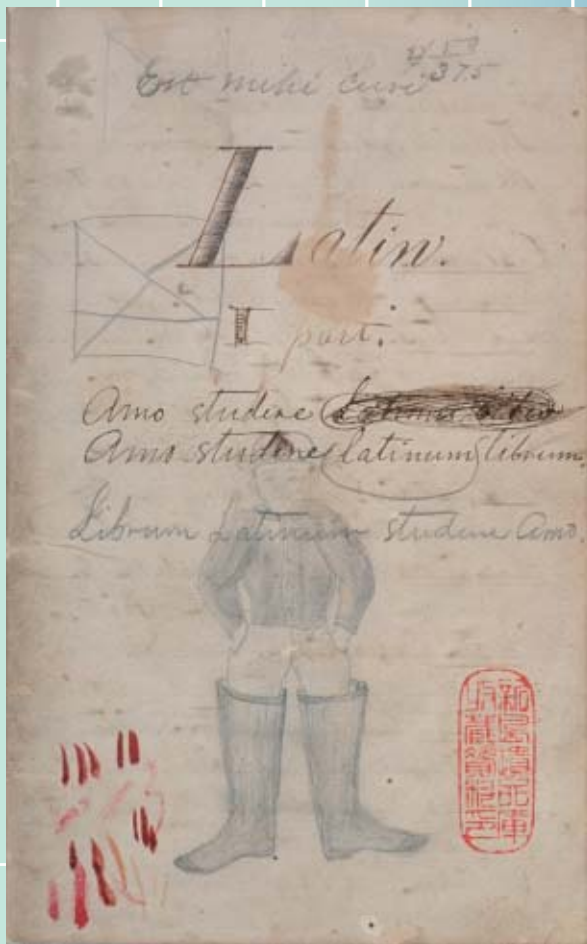 375
Est mihi
Latin.
I part.
Amo studere
Amo studere latinum librum.
Librum Latinum studere Amo.
新島遺品庫
收蔵